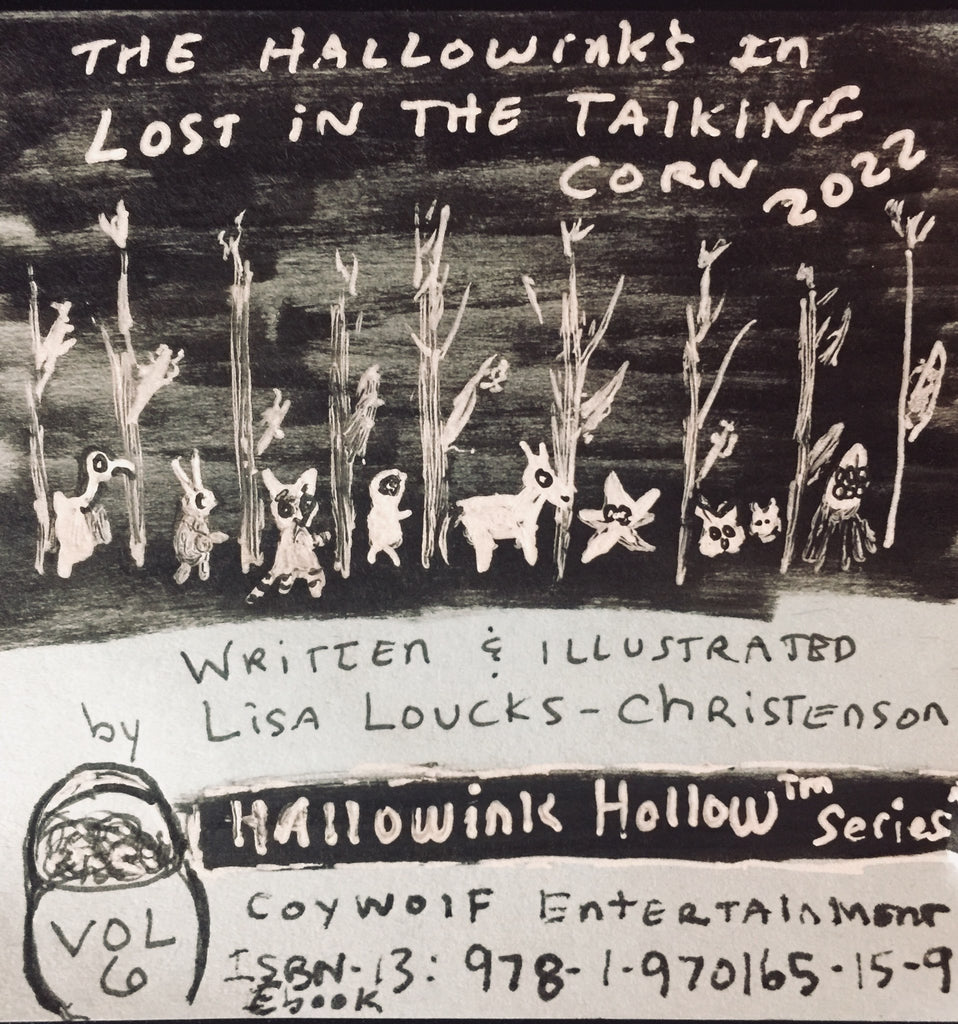 THE HALLOWink's In
LOST iN THE TAlKING
CORN 2022
WRiTTEn & iLLUSTRATED
by LiSA LOUCKS-ChRiSTEnson
HAllOWink Hollow™ Series
COYWOlF EnTERTAinMEnT
VOL
6
ISBN-13: 978-1-970165-15-9
Ebook